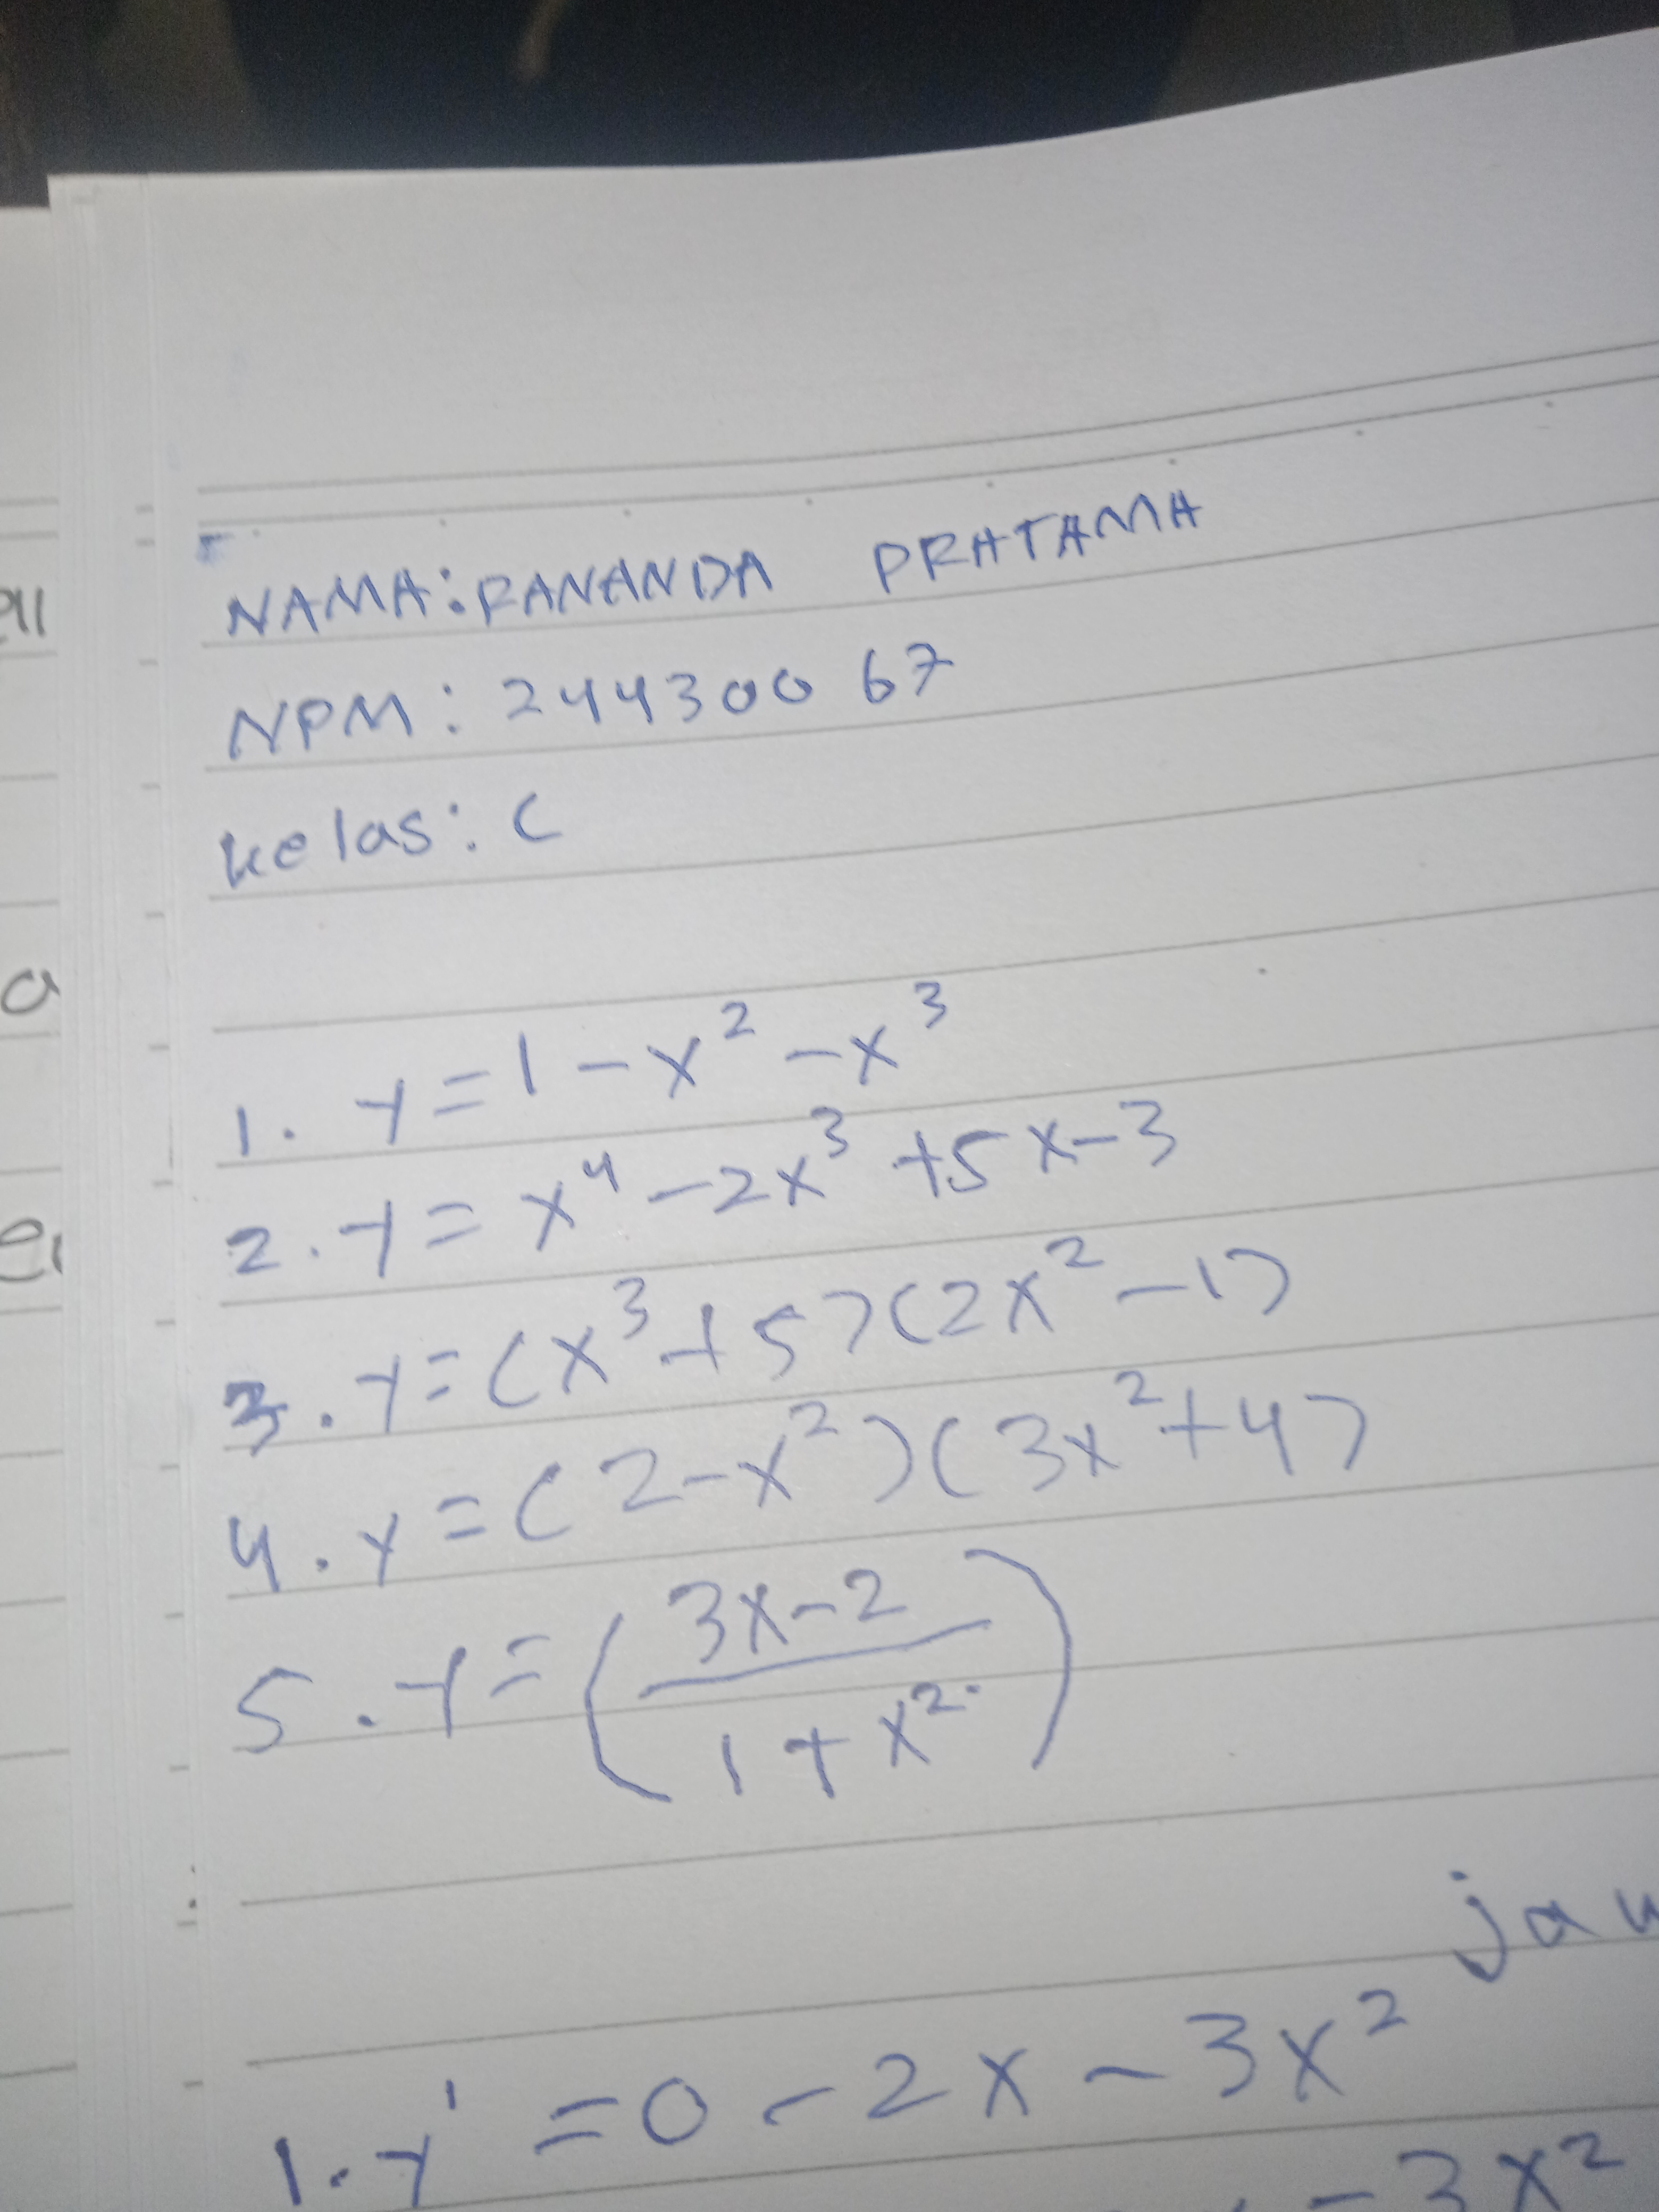 NAMA: RANANDA PRATAMA
NPM: 244300 67
kelas: C
1. y = 1 - x² - x³
2. y = x⁴ - 2x³ + 5x - 3
3. y = (x³ + 5)(2x² - 1)
4. y = (2 - x²)(3x² + 4)
5. y = (3x - 2 / 1 + x²)
1. y' = 0 - 2x - 3x²
- 3x²